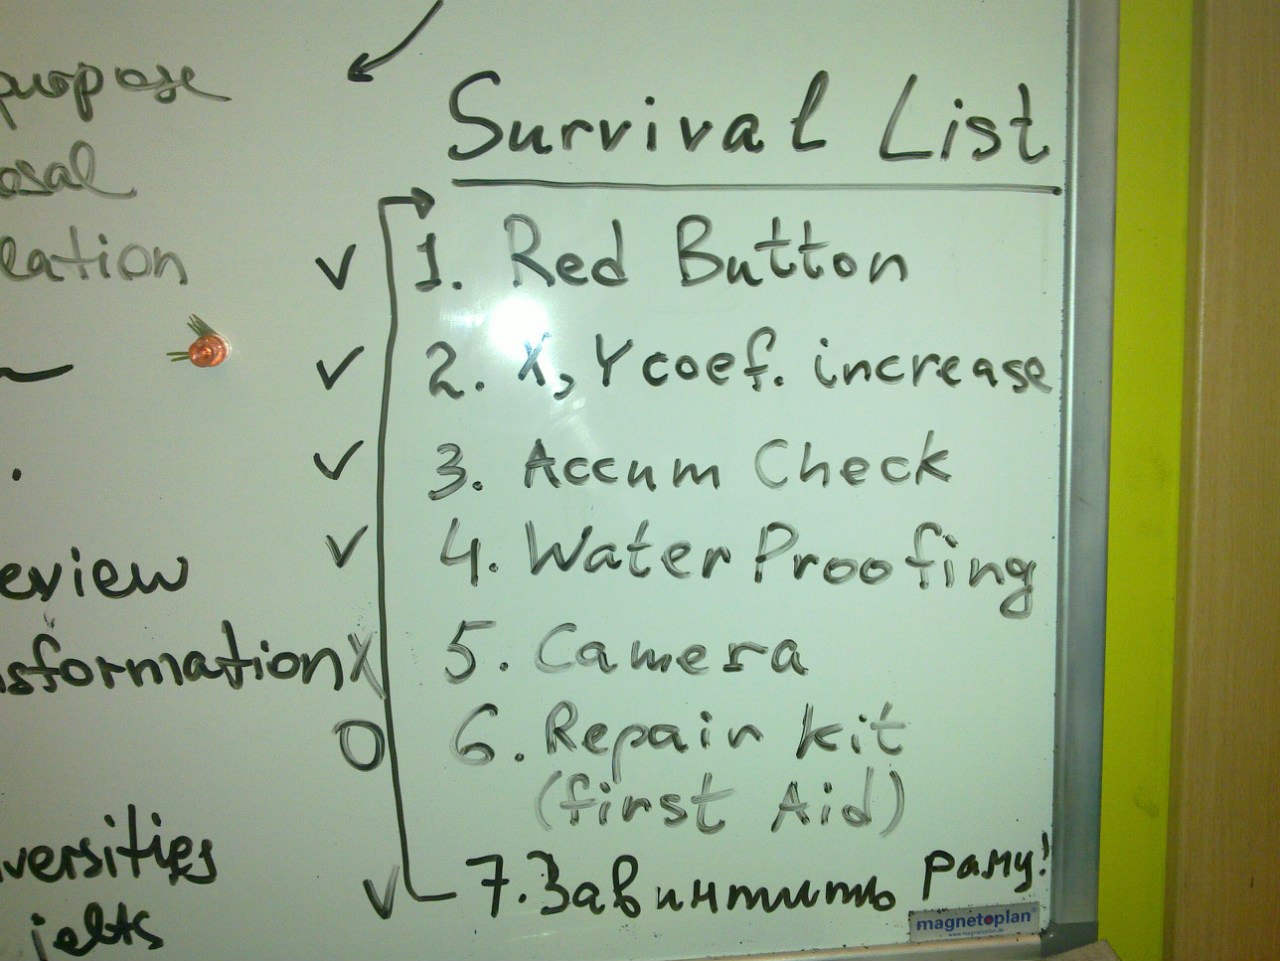 purpose
osal
eation
eview
nsformation
versities
ielts
Survival List
✓ 1. Red Button
✓ 2. X, Y coef. increase
✓ 3. Accum Check
✓ 4. Water Proofing
X 5. Camera
O 6. Repair kit
(first Aid)
✓ 7. Завинтить раму!
magnetoplan
www.magnetoplan.de